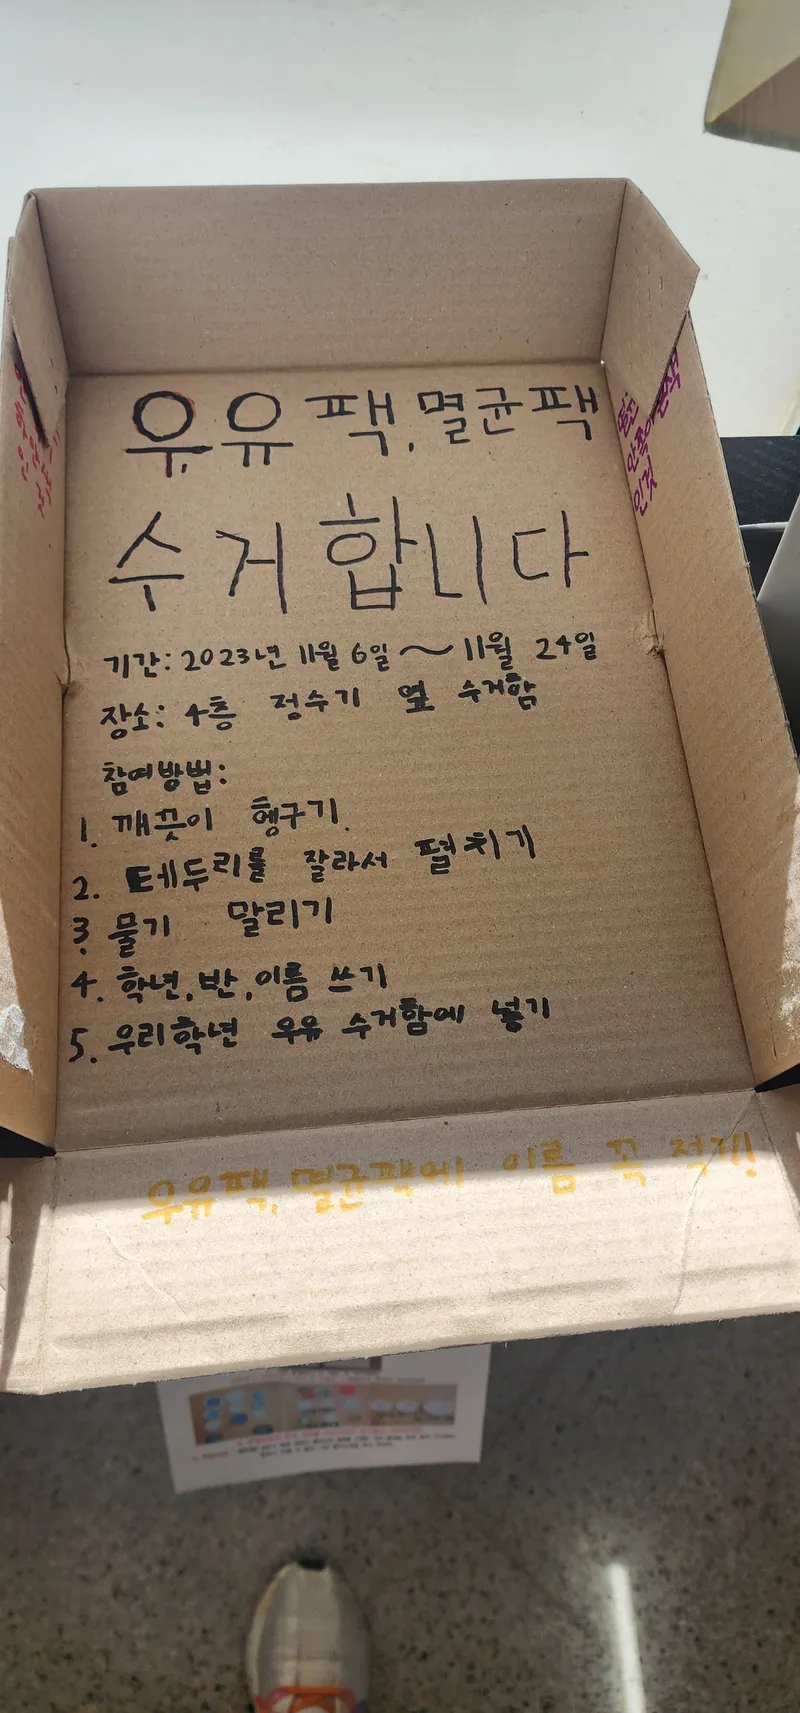 우유팩, 멸균팩
수거합니다
기간: 2023년 11월 6일 ~ 11월 24일
장소: 4층 정수기 옆 수거함
참여방법:
1. 깨끗이 헹구기.
2. 테두리를 잘라서 펼치기
3. 물기 말리기
4. 학년, 반, 이름 쓰기
5. 우리학년 우유 수거함에 넣기
우유팩, 멸균팩에 이름 꼭 적기!
안쪽이
인것
인것